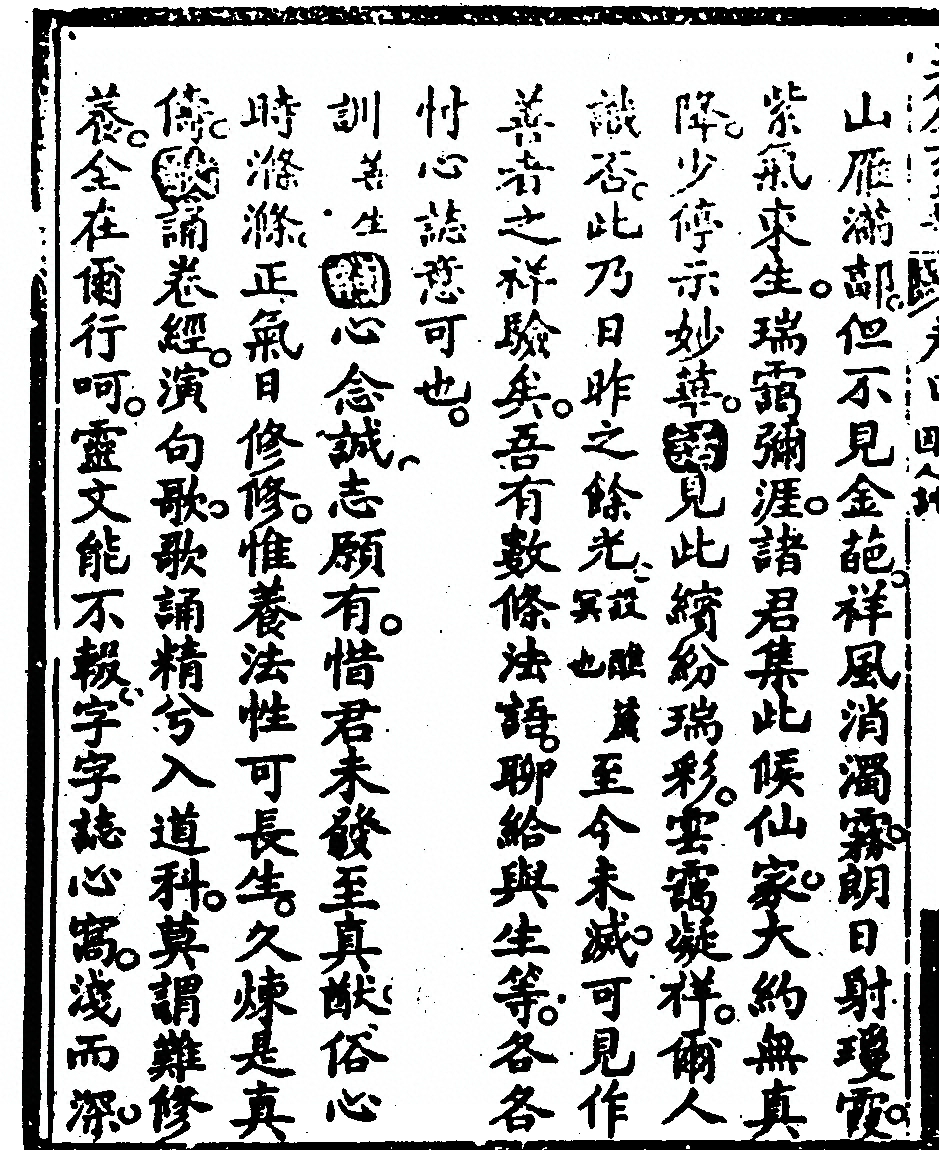 山雁滿鄗但不見金葩祥風消濁霧朗日射瓊霞
紫氣來生瑞靄彌涯諸君集此候仙家大約無真
降少停示妙華見此繽紛瑞彩雲靄凝祥爾人
識否此乃日昨之餘光設醮黃冥也至今未滅可見作
善者之祥驗矣吾有數條法語聊給與生等各各
忖心誌意可也
訓善生心念誠志願有惜君未發至真猷俗心
時滌滌正氣日修修惟養法性可長生久煉是真
儔誦卷經演句歌歌誦精兮入道科莫謂難修
養全在爾行呵靈文能不輟字字誌心窩淺而深